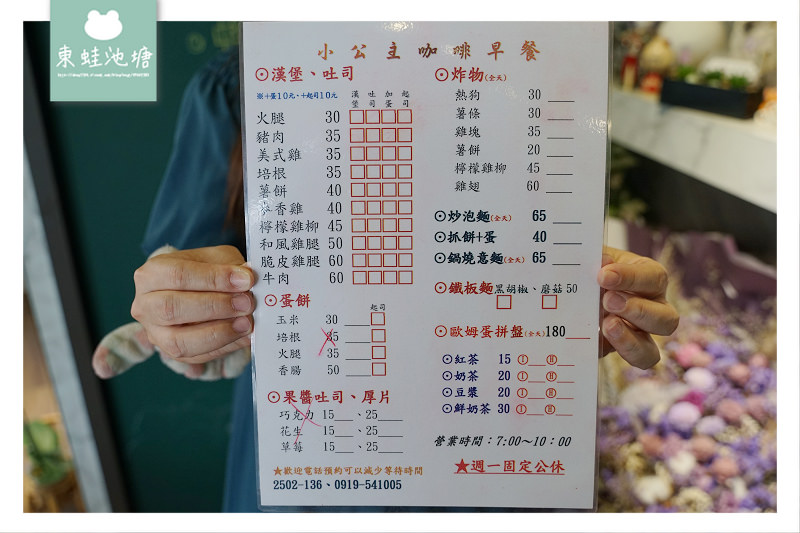 東蛙池塘
小公主咖啡早餐
⊙漢堡、吐司
※+蛋10元、+起司10元 漢堡 吐司 加蛋 起司
火腿 30 □□□□
豬肉 35 □□□□
美式雞 35 □□□□
培根 35 □□□□
薯餅 40 □□□□
麥香雞 40 □□□□
檸檬雞柳 45 □□□□
和風雞腿 50 □□□□
脆皮雞腿 60 □□□□
牛肉 60 □□□□
⊙蛋餅 起司
玉米 30 ___□
培根 35 ___□
火腿 35 ___□
香腸 50 ___□
⊙果醬吐司、厚片
巧克力 15___、25____
花生 15___、25____
草莓 15___、25____
★歡迎電話預約可以減少等待時間
2502-136、0919-541005
⊙炸物(全天)
熱狗 30 ____
薯條 30 ____
雞塊 35 ____
薯餅 20 ____
檸檬雞柳 45 ____
雞翅 60 ____
⊙炒泡麵(全天) 65 ____
⊙抓餅+蛋 40 ____
⊙鍋燒意麵(全天) 65 ____
⊙鐵板麵黑胡椒、蘑菇 50
□ □
⊙歐姆蛋拼盤(全天)180____
⊙紅茶 15 Ⓘ___Ⓗ___
⊙奶茶 20 Ⓘ___Ⓗ___
⊙豆漿 20 Ⓘ___Ⓗ___
⊙鮮奶茶 30 Ⓘ___Ⓗ___
營業時間：7:00～10：00
★週一固定公休